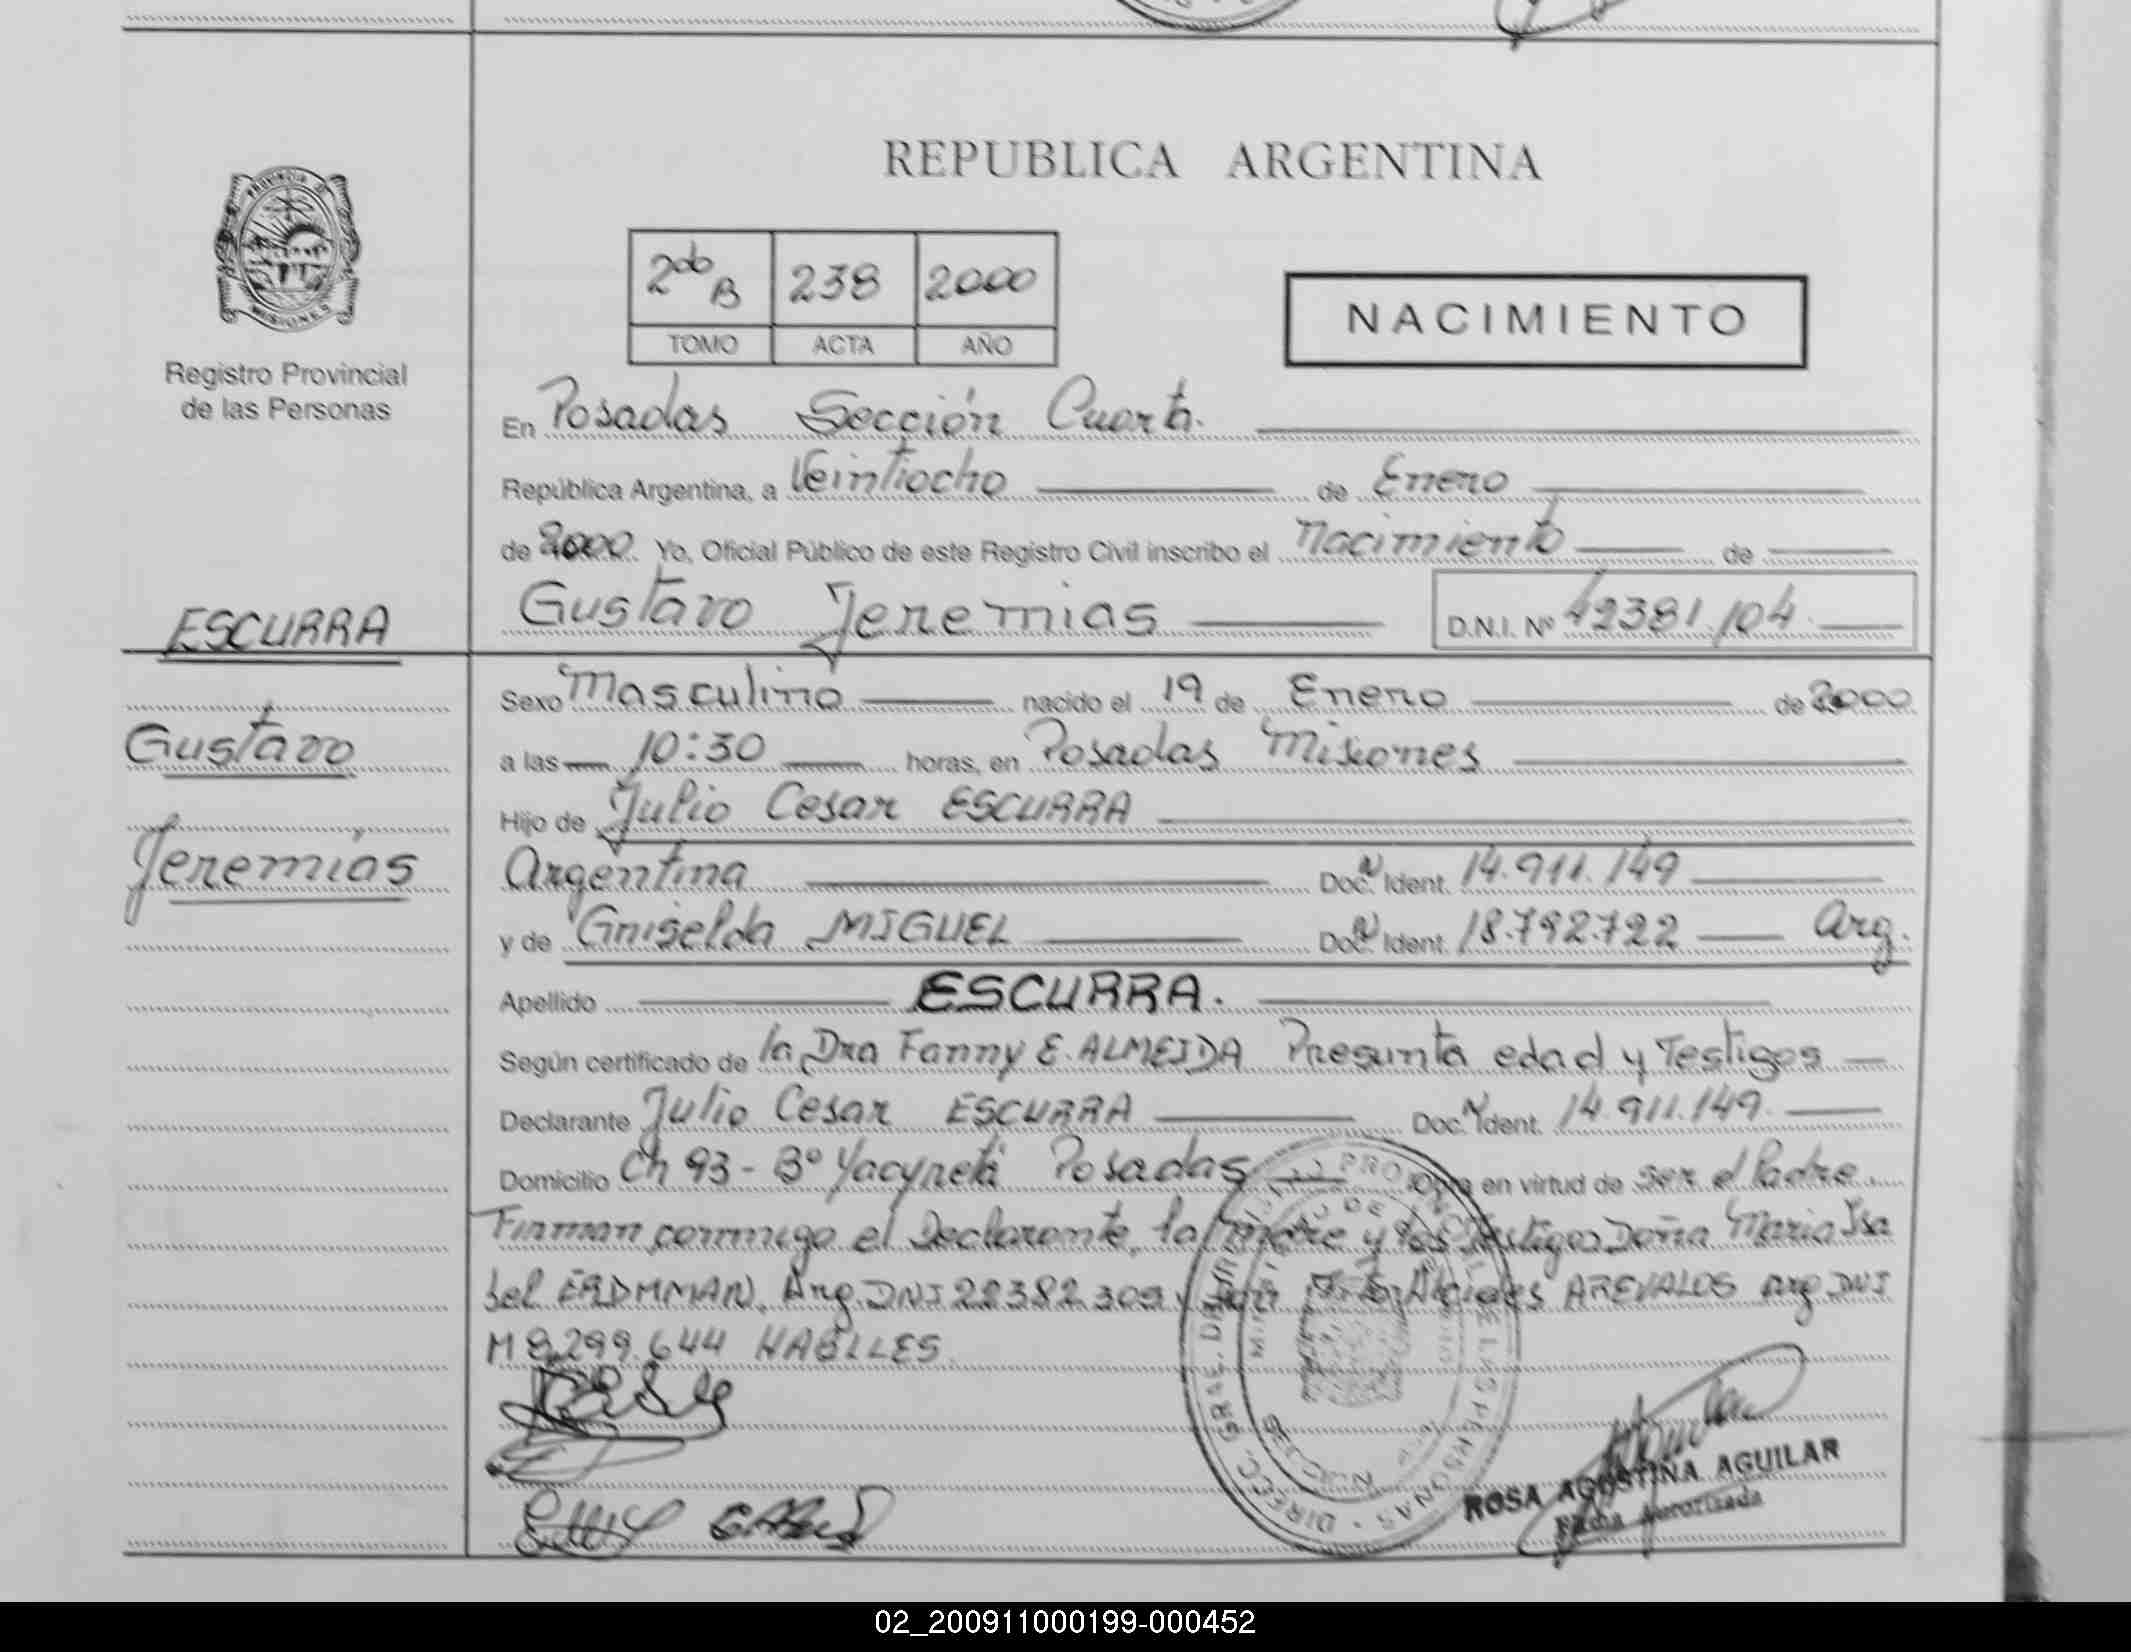 REPUBLICA ARGENTINA
PROVINCIA D
MISIONES
Registro Provincial
de las Personas
2do B 238 2000
TOMO ACTA AÑO
NACIMIENTO
En Posadas Sección Cuarta.
República Argentina, a Veintiocho de Enero
de 2000. Yo, Oficial Público de este Registro Civil inscribo el Nacimiento de
Gustavo Jeremias D.N.I. Nº 42381.104.
ESCURRA
Gustavo
Jeremías
Sexo Masculino nacido el 19 de Enero de 2000
a las 10:30 horas, en Posadas Misiones
Hijo de Julio Cesar ESCURRA
Argentina Doc. N Ident. 14.911.149
y de Griselda MIGUEL Doc. N Ident. 18.792.722 Arg.
Apellido ESCURRA.
Según certificado de la Dra Fanny E. ALMEIDA Presunta edad y Testigos
Declarante Julio Cesar ESCURRA Doc. N Ident. 14.911.149.
Domicilio Ch 93 - Bº Yacyretá Posadas en virtud de ser el Padre
Firman conmigo el Declarante, la Madre y los Testigos Doña Maria Isa
bel ERDMMAN, Arg. DNI 22382.309 y Alcides AREVALOS Arg DNI
M 8.299.644 HABILES.
DIRECC. GRAL. DE LAS PERSONAS
ROSA AGOSTINA AGUILAR
Firma Autorizada
02_200911000199-000452